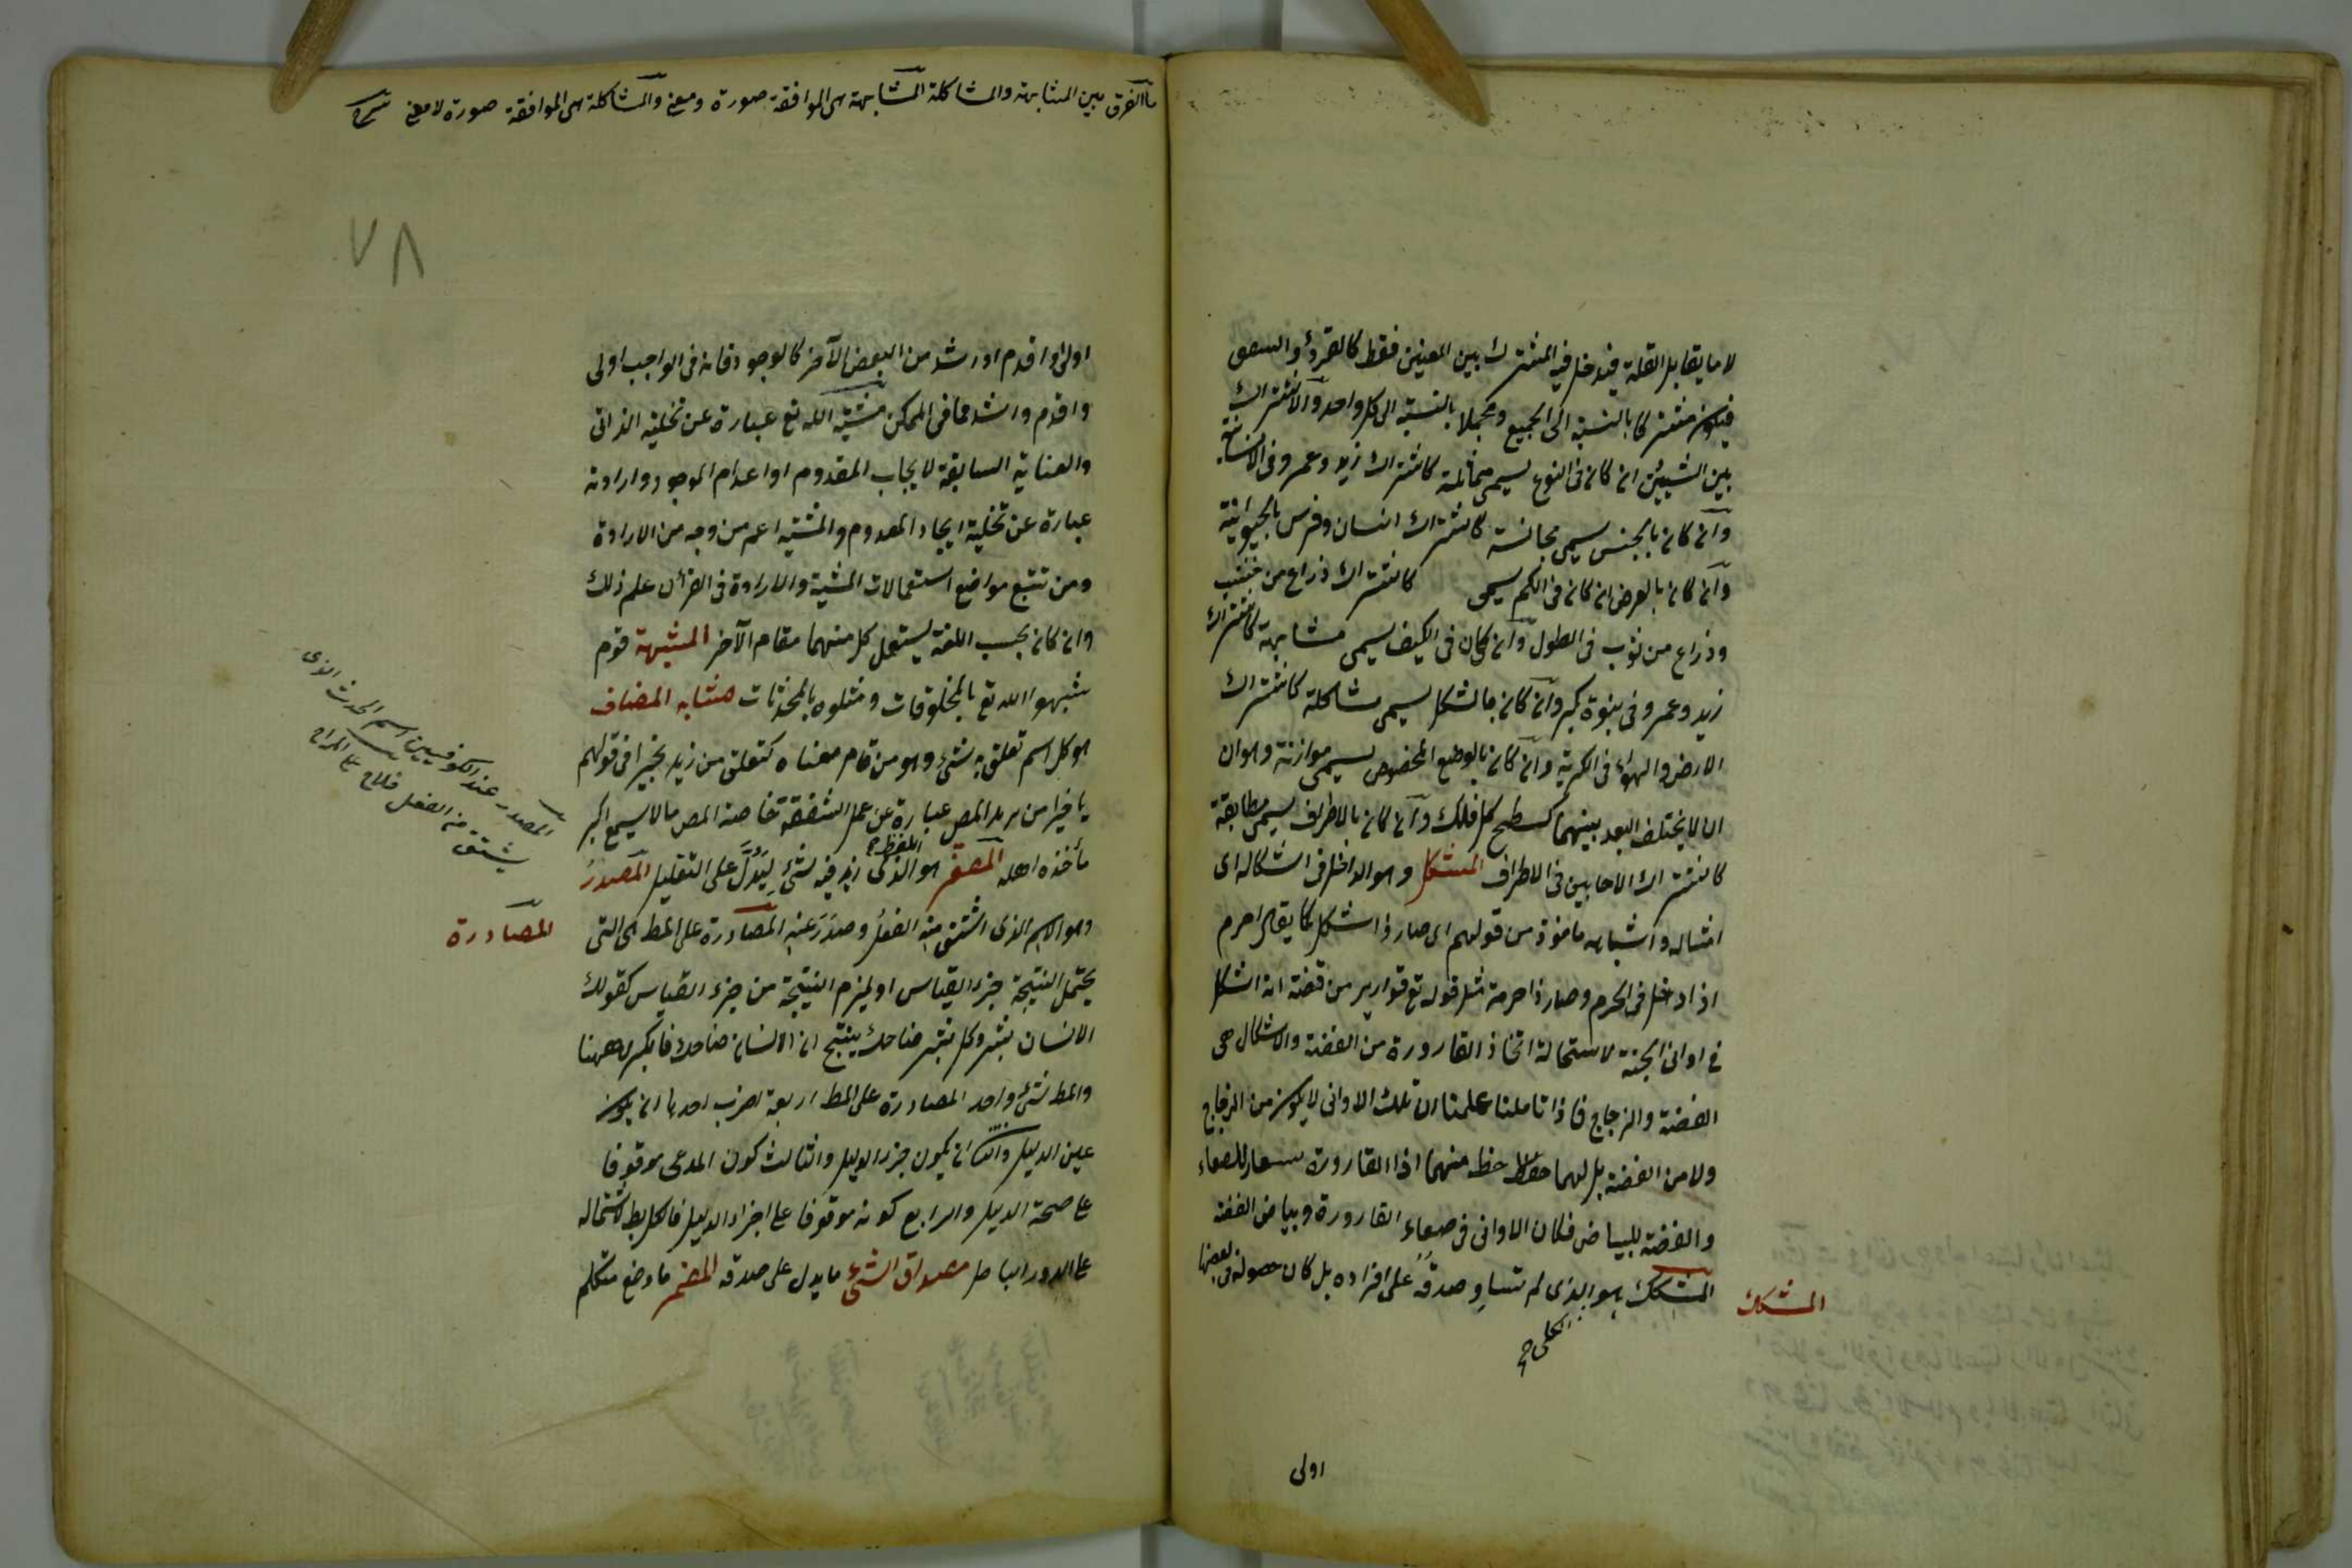 لا ما يقابل القلة فيدخل فيه المشترك بين المعنيين فقط كالقرء والشفق
فيكون مشتركا بالنسبة الى الجميع ومجملا بالنسبة الى كل واحد والاشتراك
بين الشيئين ان كان فى النوع يسمى مماثلة كاشتراك زيد وعمرو فى الانسانية
وان كان بالجنس يسمى مجانسة كاشتراك انسان وفرس بالحيوانية
وان كان بالعرض ان كان فى الكم يسمى كاشتراك ذراع من خشب
وذراع من ثوب فى الطول وان كان فى الكيف يسمى مشابهة كاشتراك
زيد وعمرو فى بنوة بكر وان كان بالشكل يسمى مشاكلة كاشتراك
الارض والهواء فى الكرية وان كان بالوضع المخصوص يسمى موازنة وهو ان
ان لا يختلف البعد بينهما كسطح كل فلك وان كان بالاطراف يسمى مطابقة
كاشتراك الاجابين فى الاطراف المشكل وهو الداخل فى اشكاله اى
امثاله واشباهه ماخوذ من قولهم اى صار ذا شكل كما يقال احرم
اذا دخل فى الحرم وصار ذا حرمة مثل قوله تع قوارير من فضة انه اشكل
فى اوانى الجنة لاستحالة اتخاذ القارورة من الفضة والاشكال هى
الفضة والزجاج فاذا تاملنا علمنا ان تلك الاوانى لا يكون من الزجاج
ولا من الفضة بل لها حظ منهما اذا القارورة يستعار للصفاء
والفضة للبياض فكان الاوانى فى صفاء القارورة وبياض الفضة
المشكك هو الذى لم يتساو صدقه على افراده بل كان حصوله فى بعضها
الكلى صح
المشكك
اولى
ما الفرق بين المشابهة والمشاكلة المشابهة هى الموافقة صورة ومعنى والمشاكلة هى الموافقة صورة لا معنى
٧٨
اولى او اقدم او اشد من البعض الآخر كالوجود فانه فى الواجب اولى
واقدم واشد مما فى الممكن مشية الله تع عبارة عن تجلية الذاتى
والعناية السابقة لايجاب المعدوم او اعدام الموجود وارادته
عبارة عن تجلية ايجاد المعدوم والمشية اعم من وجه من الارادة
ومن تتبع مواضع استعمالات المشية والارادة فى القرأن علم ذلك
وان كان بحسب اللغة يستعمل كل منهما مقام الآخر المشبهة قوم
شبهوا الله تع بالمخلوقات ومثلوه بالمحدثات مشابه المضاف
هو كل اسم تعلق به شئ وهو من تمام معناه كتعلق من زيد بخيرا فى قولهم
يا خيرا من زيد المص عبارة عن عمل الشفقة خاصة المص مالا يسع اكبر
مأخذه اهله المصغر هو اللفظ الذى زيد فيه شئ ليدل على التقليل المصدر
وهو الاسم الذى اشتق منه الفعل وصدر عنه المصادرة على المط هى التى
يحتمل النتيجة جزء القياس او يلزم النتيجة من جزء القياس كقولك
الانسان بشر وكل بشر ضاحك ينتج ان الانسان ضاحك فالكبرى ههنا
والمط شئ واحد المصادرة على المط اربعة اضرب احدها ان يكون
عين الدليل والثانى ان يكون جزء الدليل والثالث كون المدعى موقوفا
على صحة الدليل والرابع كونه موقوفا على اجزاء الدليل فالكل بط لاشتماله
على الدور الباطل مصداق الشئ ما يدل على صدقه المضمر ما وضع متكلم
المصدر عند الكوفيين اسم الحدث الذى
يشتق من الفعل
المصادرة